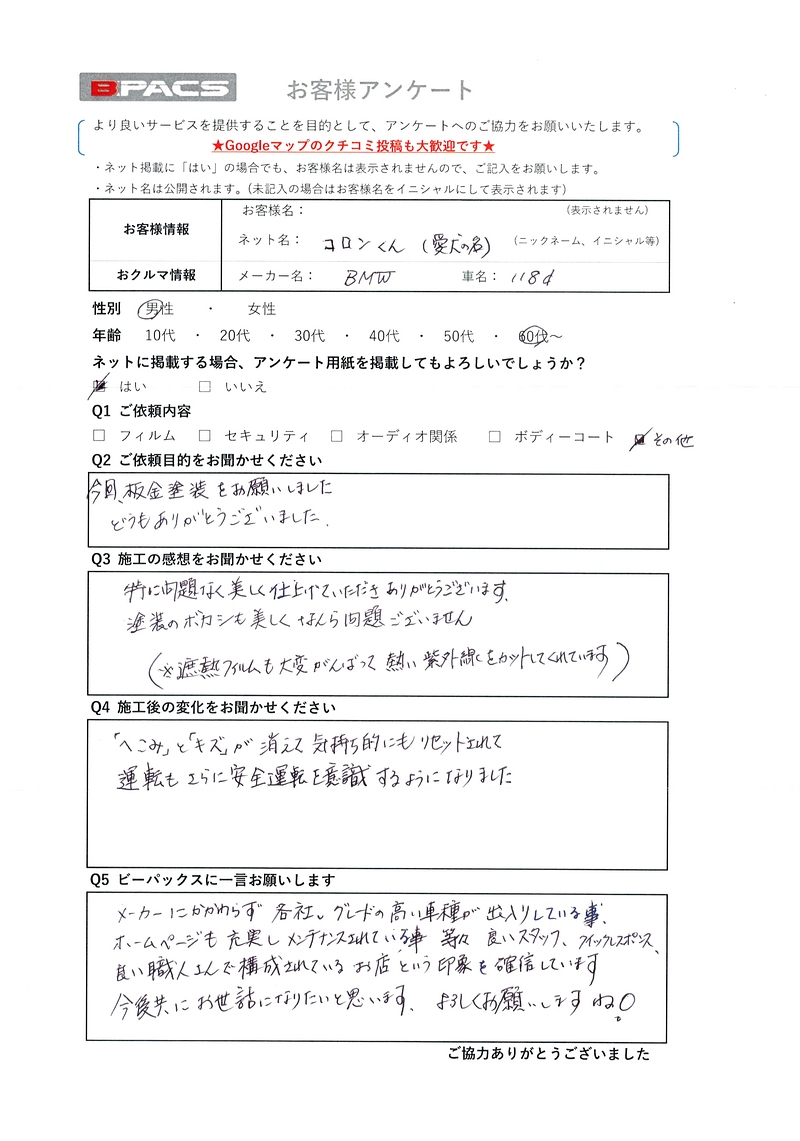 BPACS お客様アンケート
より良いサービスを提供することを目的として、アンケートへのご協力をお願いいたします。
★Googleマップのクチコミ投稿も大歓迎です★
・ネット掲載に「はい」の場合でも、お客様名は表示されませんので、ご記入をお願いします。
・ネット名は公開されます。（未記入の場合はお客様名をイニシャルにして表示されます）
お客様情報
お客様名： （表示されません）
ネット名： コロンくん （愛犬の名） （ニックネーム、イニシャル等）
おクルマ情報 メーカー名： BMW 車名： 118d
性別 男性 ・ 女性
年齢 10代 ・ 20代 ・ 30代 ・ 40代 ・ 50代 ・ 60代～
ネットに掲載する場合、アンケート用紙を掲載してもよろしいでしょうか？
☑ はい □ いいえ
Q1 ご依頼内容
□ フィルム □ セキュリティ □ オーディオ関係 □ ボディーコート ☑ その他
Q2 ご依頼目的をお聞かせください
今回、板金塗装をお願いしました
どうもありがとうございました．
Q3 施工の感想をお聞かせください
特に問題なく美しく仕上げていただきありがとうございます、
塗装のボカシも美しくなんら問題ございません
（※遮熱フィルムも大変がんばって 熱い紫外線をカットしてくれています）
Q4 施工後の変化をお聞かせください
「へこみ」と「キズ」が消えて気持ち的にもリセットされて
運転もさらに安全運転を意識するようになりました
Q5 ビーパックスに一言お願いします
メーカーにかかわらず 各社、グレードの高い車種が出入りしている事、
ホームページも充実しメンテナンスされている事 等々 良いスタッフ、クイックレスポンス、
良い職人さんで構成されているお店という印象を確信しています
今後共にお世話になりたいと思います、よろしくお願いしますね！
ご協力ありがとうございました